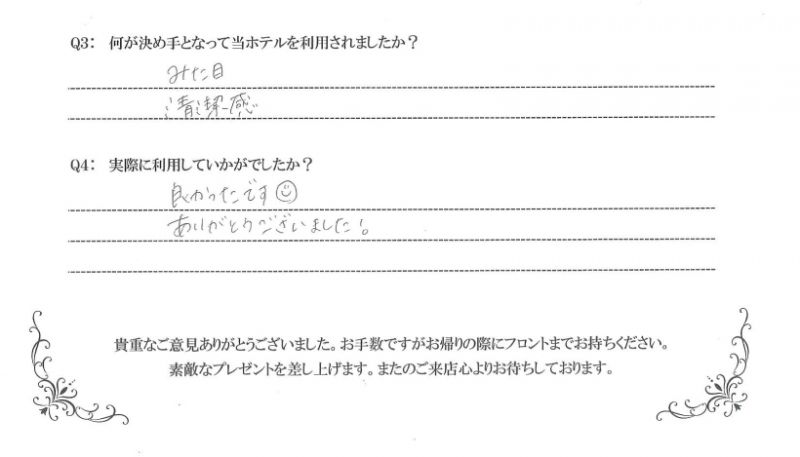 Q3： 何が決め手となって当ホテルを利用されましたか？
みた目
清潔感
Q4： 実際に利用していかがでしたか？
良かったです☺
ありがとうございました！
貴重なご意見ありがとうございました。お手数ですがお帰りの際にフロントまでお持ちください。
素敵なプレゼントを差し上げます。またのご来店心よりお待ちしております。